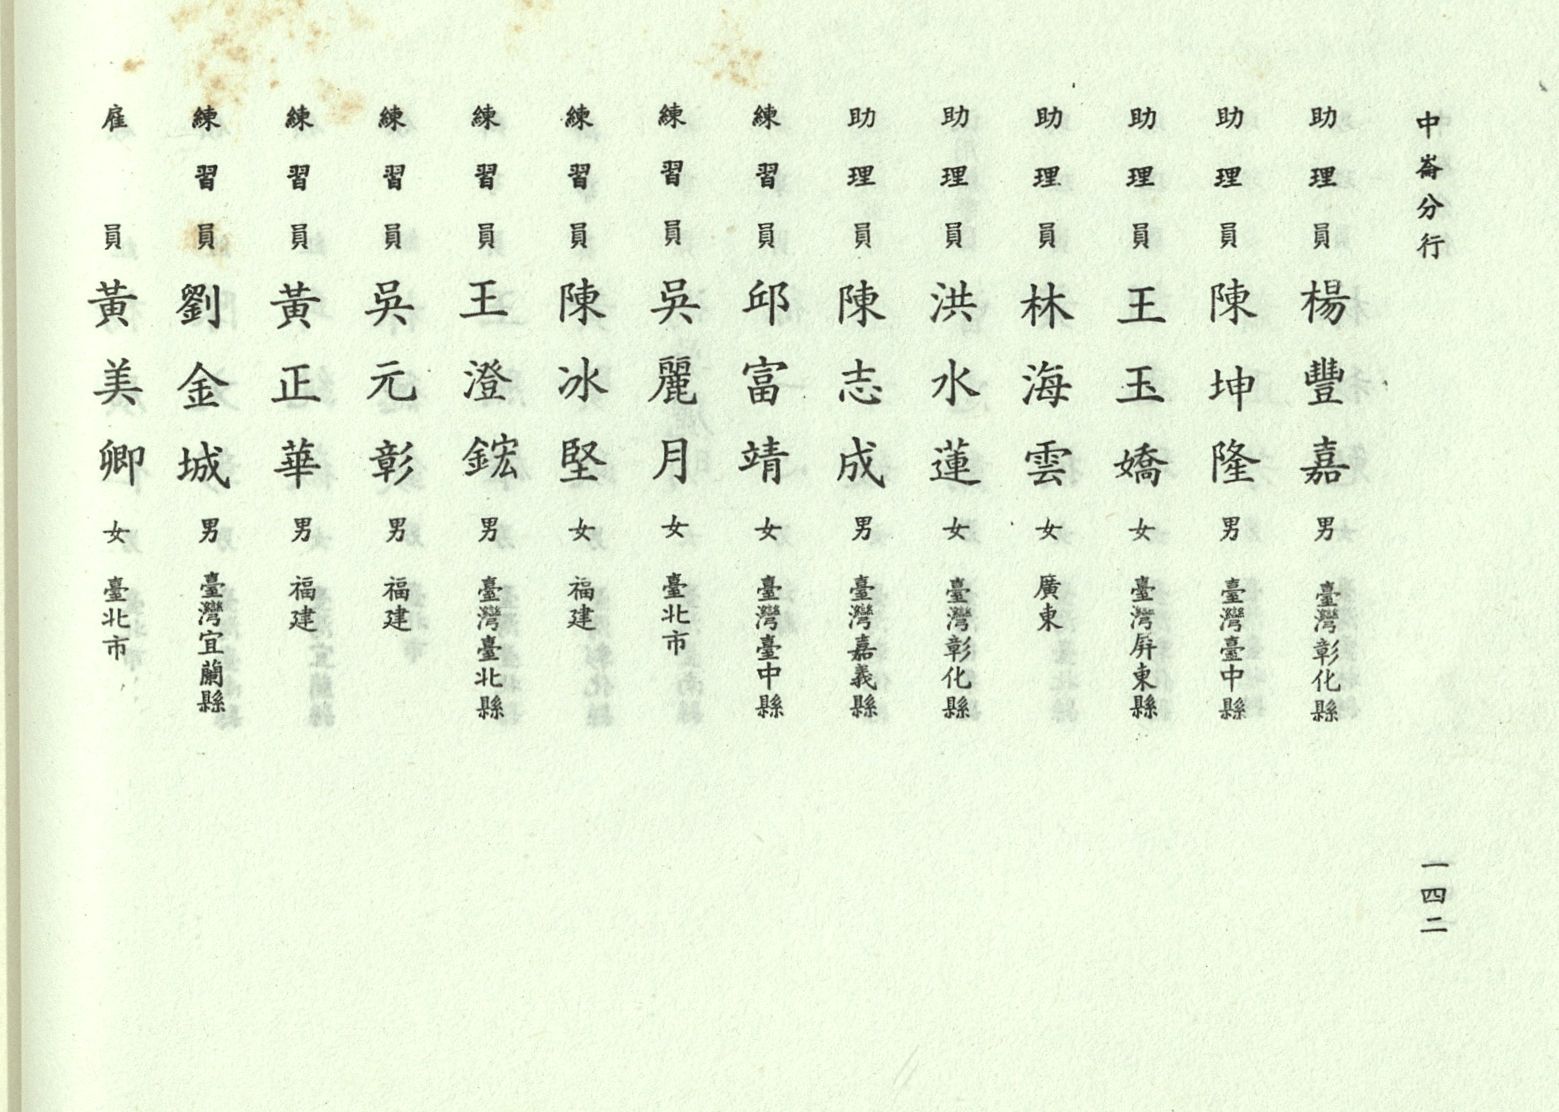 中崙分行
助理員 楊豐嘉 男 臺灣彰化縣
助理員 陳坤隆 男 臺灣臺中縣
助理員 王玉嬌 女 臺灣屏東縣
助理員 林海雲 女 廣東
助理員 洪水蓮 女 臺灣彰化縣
助理員 陳志成 男 臺灣嘉義縣
練習員 邱富靖 女 臺灣臺中縣
練習員 吳麗月 女 臺北市
練習員 陳冰堅 女 福建
練習員 王澄鋐 男 臺灣臺北縣
練習員 吳元彰 男 福建
練習員 黃正華 男 福建
練習員 劉金城 男 臺灣宜蘭縣
雇員 黃美卿 女 臺北市
一四二